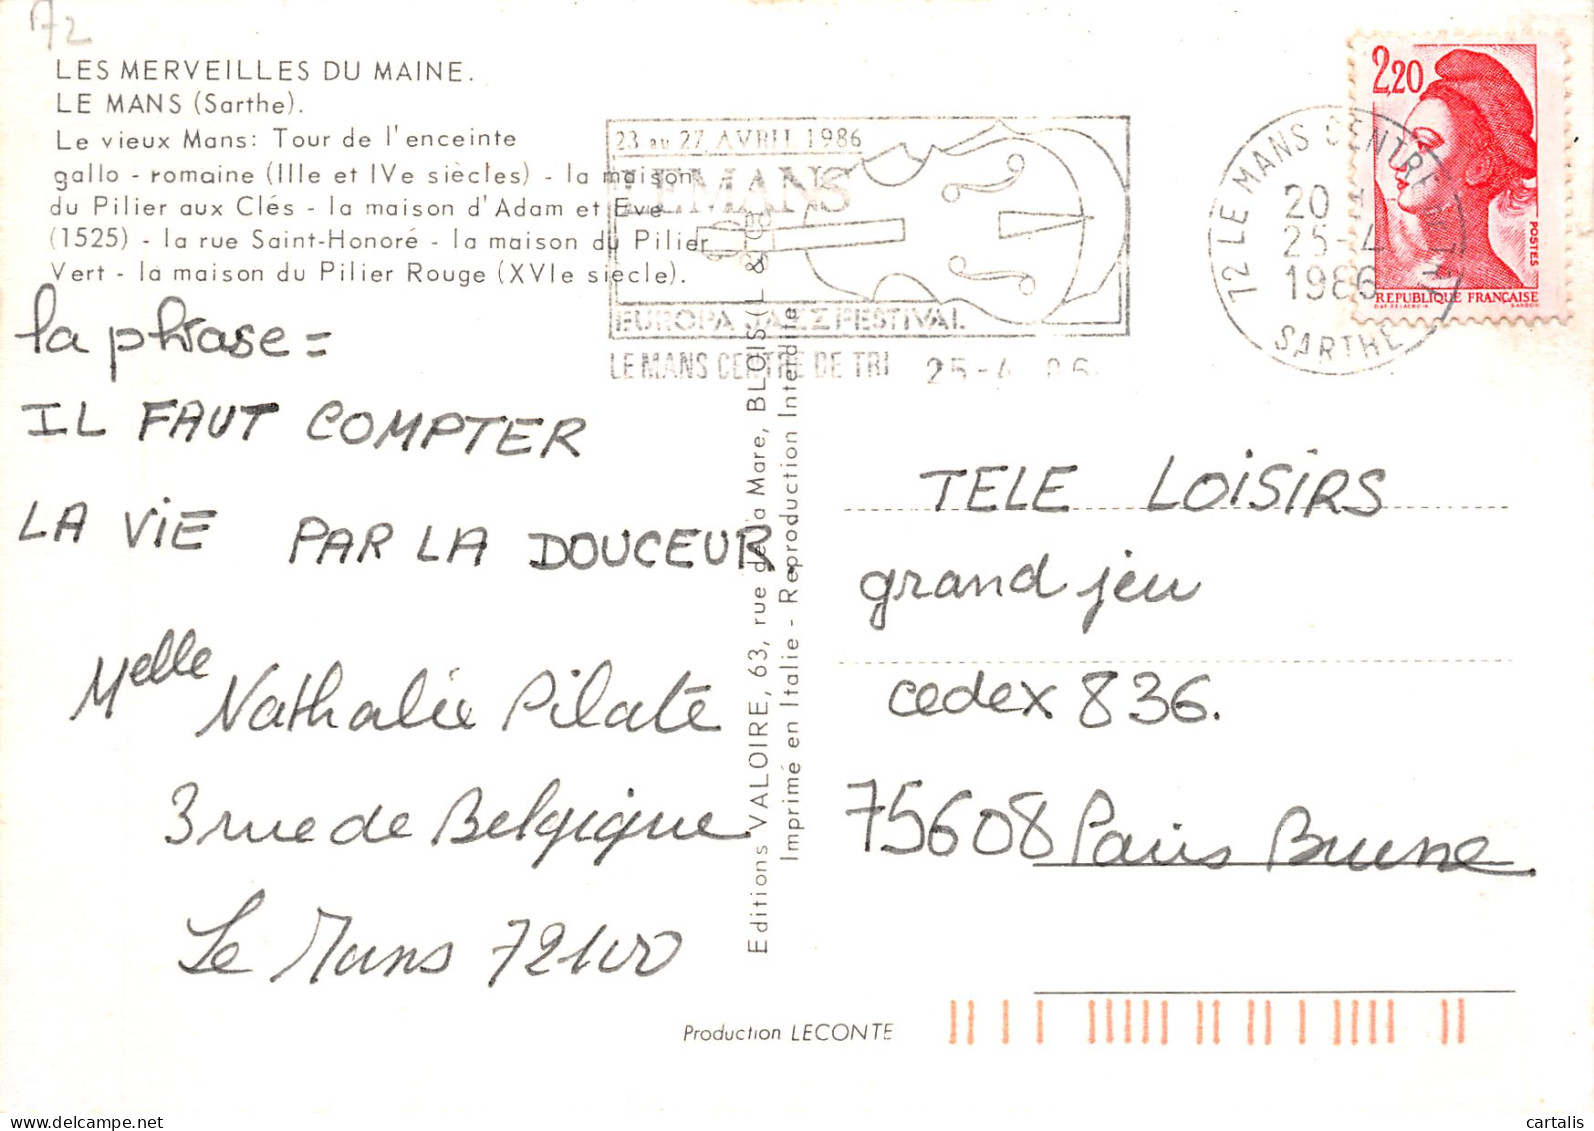 72
LES MERVEILLES DU MAINE.
LE MANS (Sarthe).
Le vieux Mans: Tour de l'enceinte
gallo - romaine (IIIe et IVe siècles) - la maison
du Pilier aux Clés - la maison d'Adam et Eve
(1525) - la rue Saint-Honoré - la maison du Pilier
Vert - la maison du Pilier Rouge (XVIe siècle).
la phrase =
IL FAUT COMPTER
LA ViE PAR LA DOUCEUR.
Melle Nathalie Pilate
3 rue de Belgique
Le Mans 72100
23 au 27 AVRIL 1986
LE MANS
EUROPA JAZZ FESTIVAL
LE MANS CENTRE DE TRI 25-4 86
72 LE MANS CENTRE DE TRI
20 H
25-4
1986
SARTHE
2,20
POSTES
REPUBLIQUE FRANÇAISE
Editions VALOIRE, 63, rue de la Mare, BLOIS (L. & C.)
Imprimé en Italie - Reproduction Interdite
TELE LOiSiRS
grand jeu
cedex 836.
75608 Paris Brune
Production LECONTE
cartalis